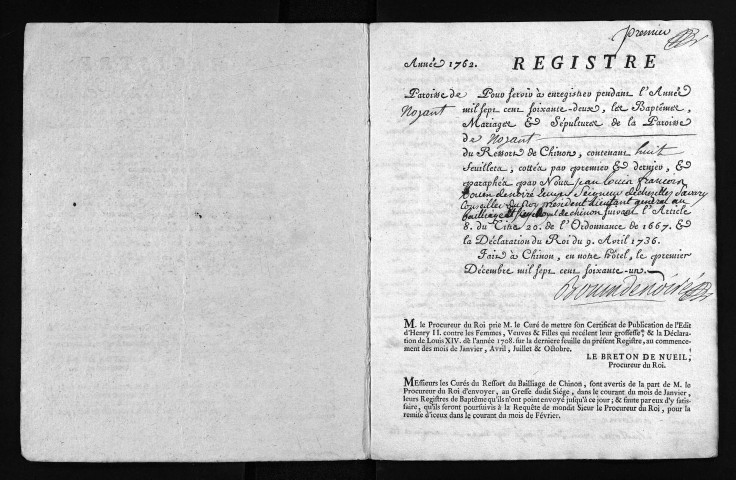 premier
Année 1762. REGISTRE
Paroisse de Nozant
Pour servir à enregistrer pendant l'Année
mil sept cent soixante-deux, les Baptêmes,
Mariages & Sépultures de la Paroisse
de Nozant
du Ressort de Chinon, contenant huit
feuillets, cottés par premier & dernier, &
paraphés par Nous jean louis francois
Bouin de noiré Seigneur
Conseiller du Roy president lieutenant general au
bailliage de chinon suivant l'Article
8. du Titre 20. de l'Ordonnance de 1667. &
la Déclaration du Roi du 9. Avril 1736.
Fait à Chinon, en notre hôtel, le premier
Décembre mil sept cent soixante-un.
Bouin de noiré
M. le Procureur du Roi prie M. le Curé de mettre son Certificat de Publication de l'Edit
d'Henry II. contre les Femmes, Veuves & Filles qui recélent leur grossesse, & la Déclara-
tion de Louis XIV. de l'année 1708. sur la derniere feuille du présent Registre, au commence-
ment des mois de Janvier, Avril, Juillet & Octobre.
LE BRETON DE NUEIL,
Procureur du Roi.
MEssieurs les Curés du Ressort du Bailliage de Chinon, sont avertis de la part de M. le
Procureur du Roi d'envoyer, au Greffe dudit Siége, dans le courant du mois de Janvier,
leurs Registres de Baptême qu'ils n'ont point envoyé jusqu'à ce jour; & faute par eux d'y satis-
faire, qu'ils seront poursuivis à la Requête de mondit Sieur le Procureur du Roi, pour la
remise d'iceux dans le courant du mois de Février.